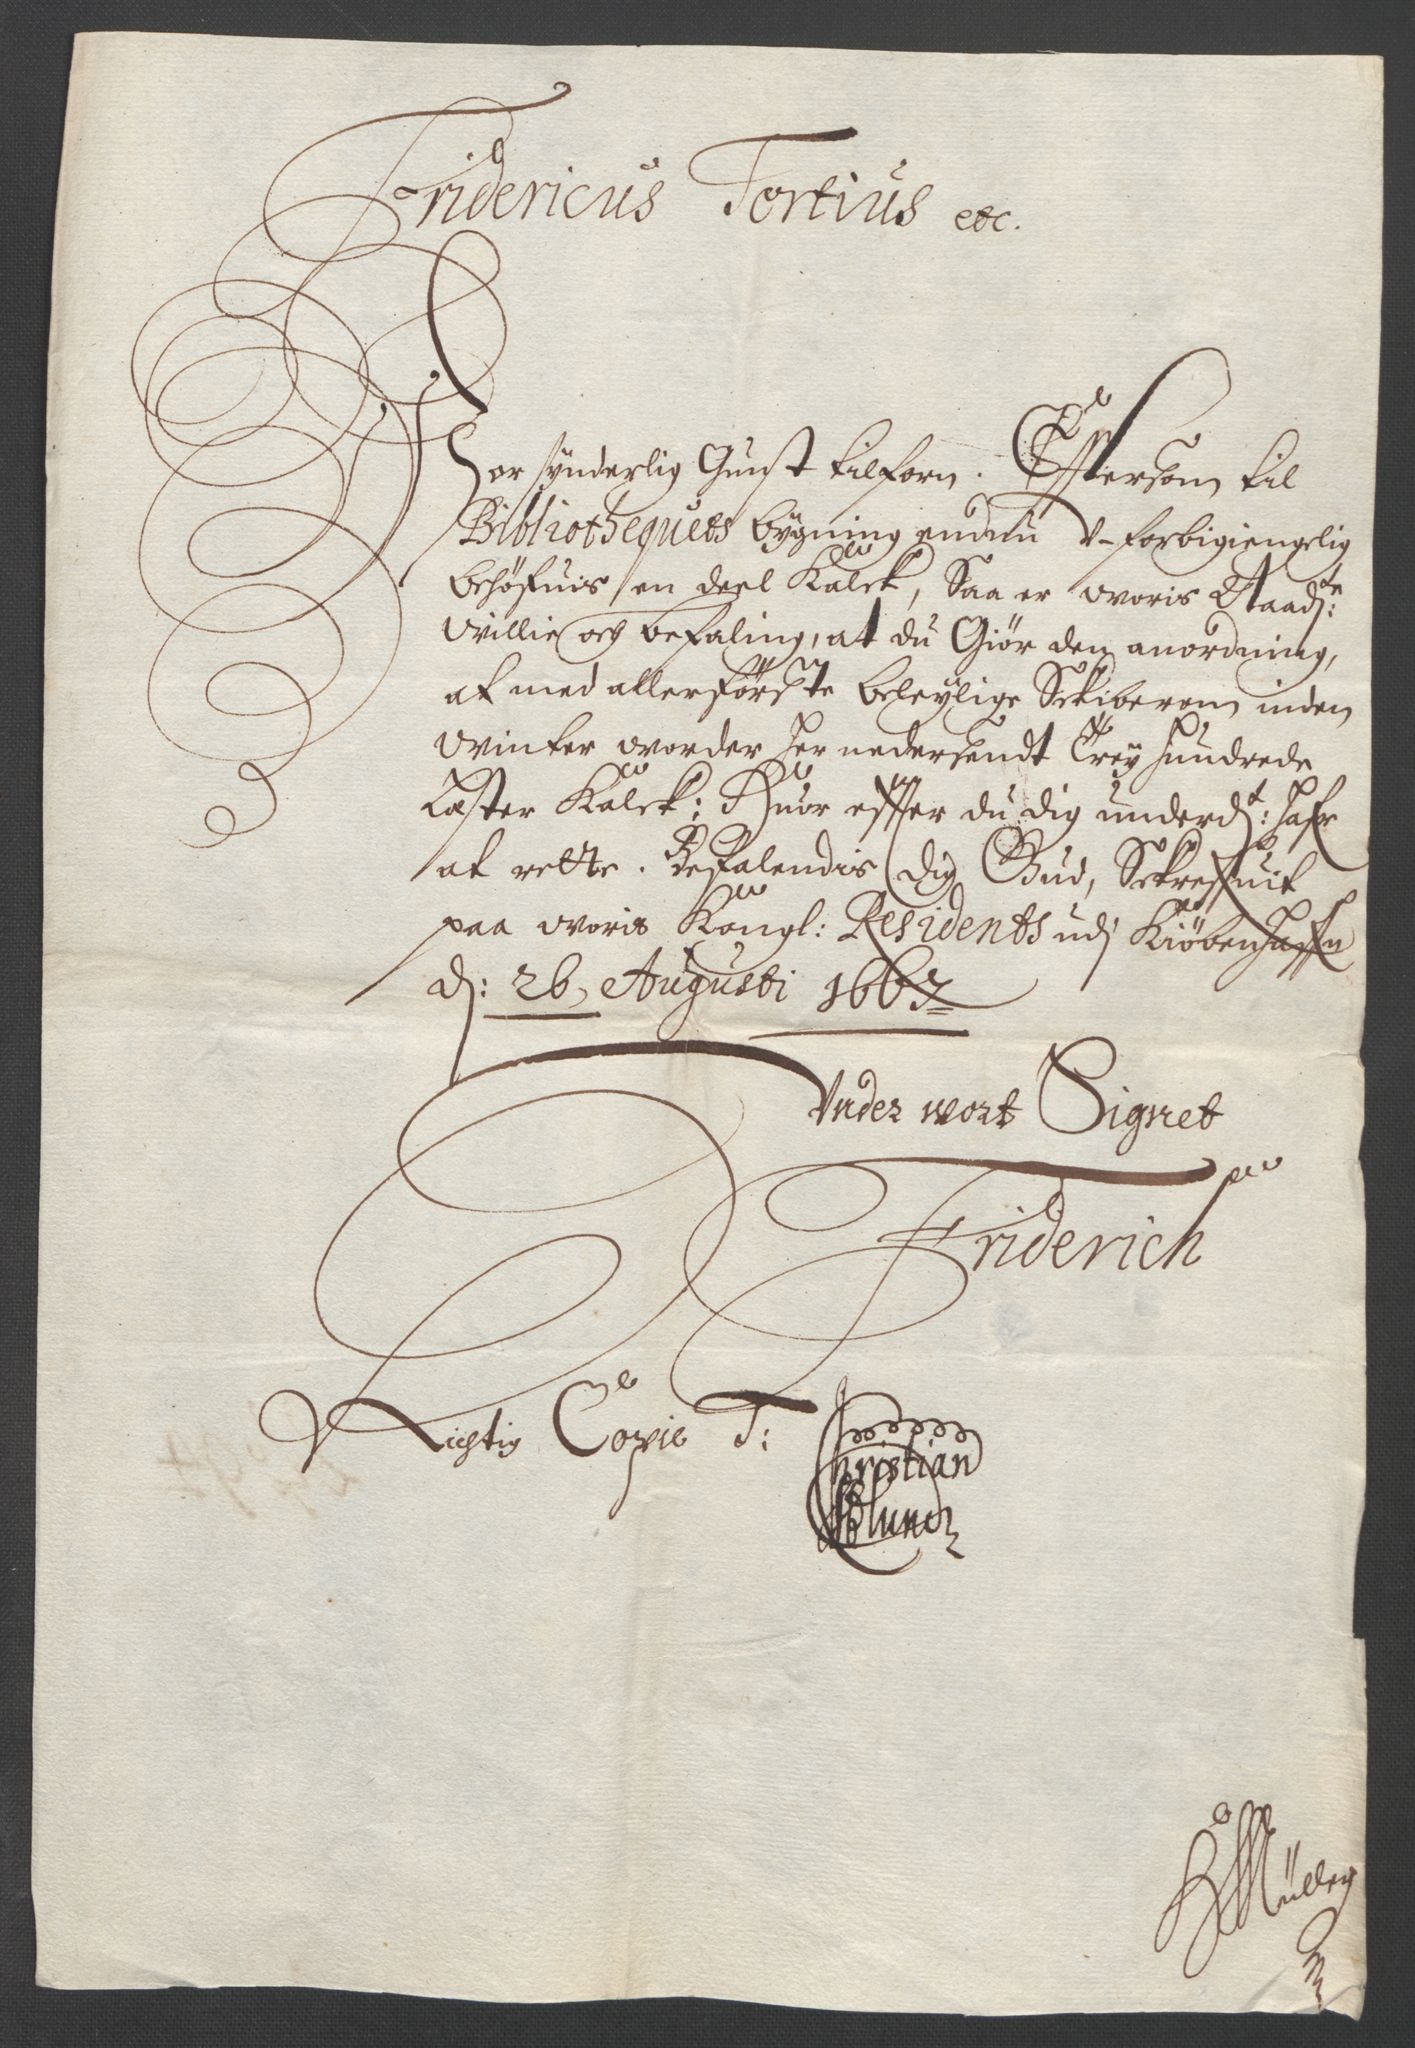 Fridericus Tertius etc.
Vor synderlig Gunst tilforn. Efftersom til
Bibliothequets bygning endnu V-forbigiengelig
behøfuis en deel Kalck, Saa er voris Naadste:
Villie och befaling, at du Giør den anordning,
at med allerførste beleylige Skiberom inden
Vinter vorder her nedersendt Trey hundrede
Læster Kalck; Huor effter du dig underdt: hafr
at rette. Befalendis dig Gud, Skrefuit
paa voris Kongl: Residents udj Kiøbenhaffn
dj: 26 Augusti 1667
Under vort Signet
Friderich
Richtig Copie T:
Christian
Blund
H Müller